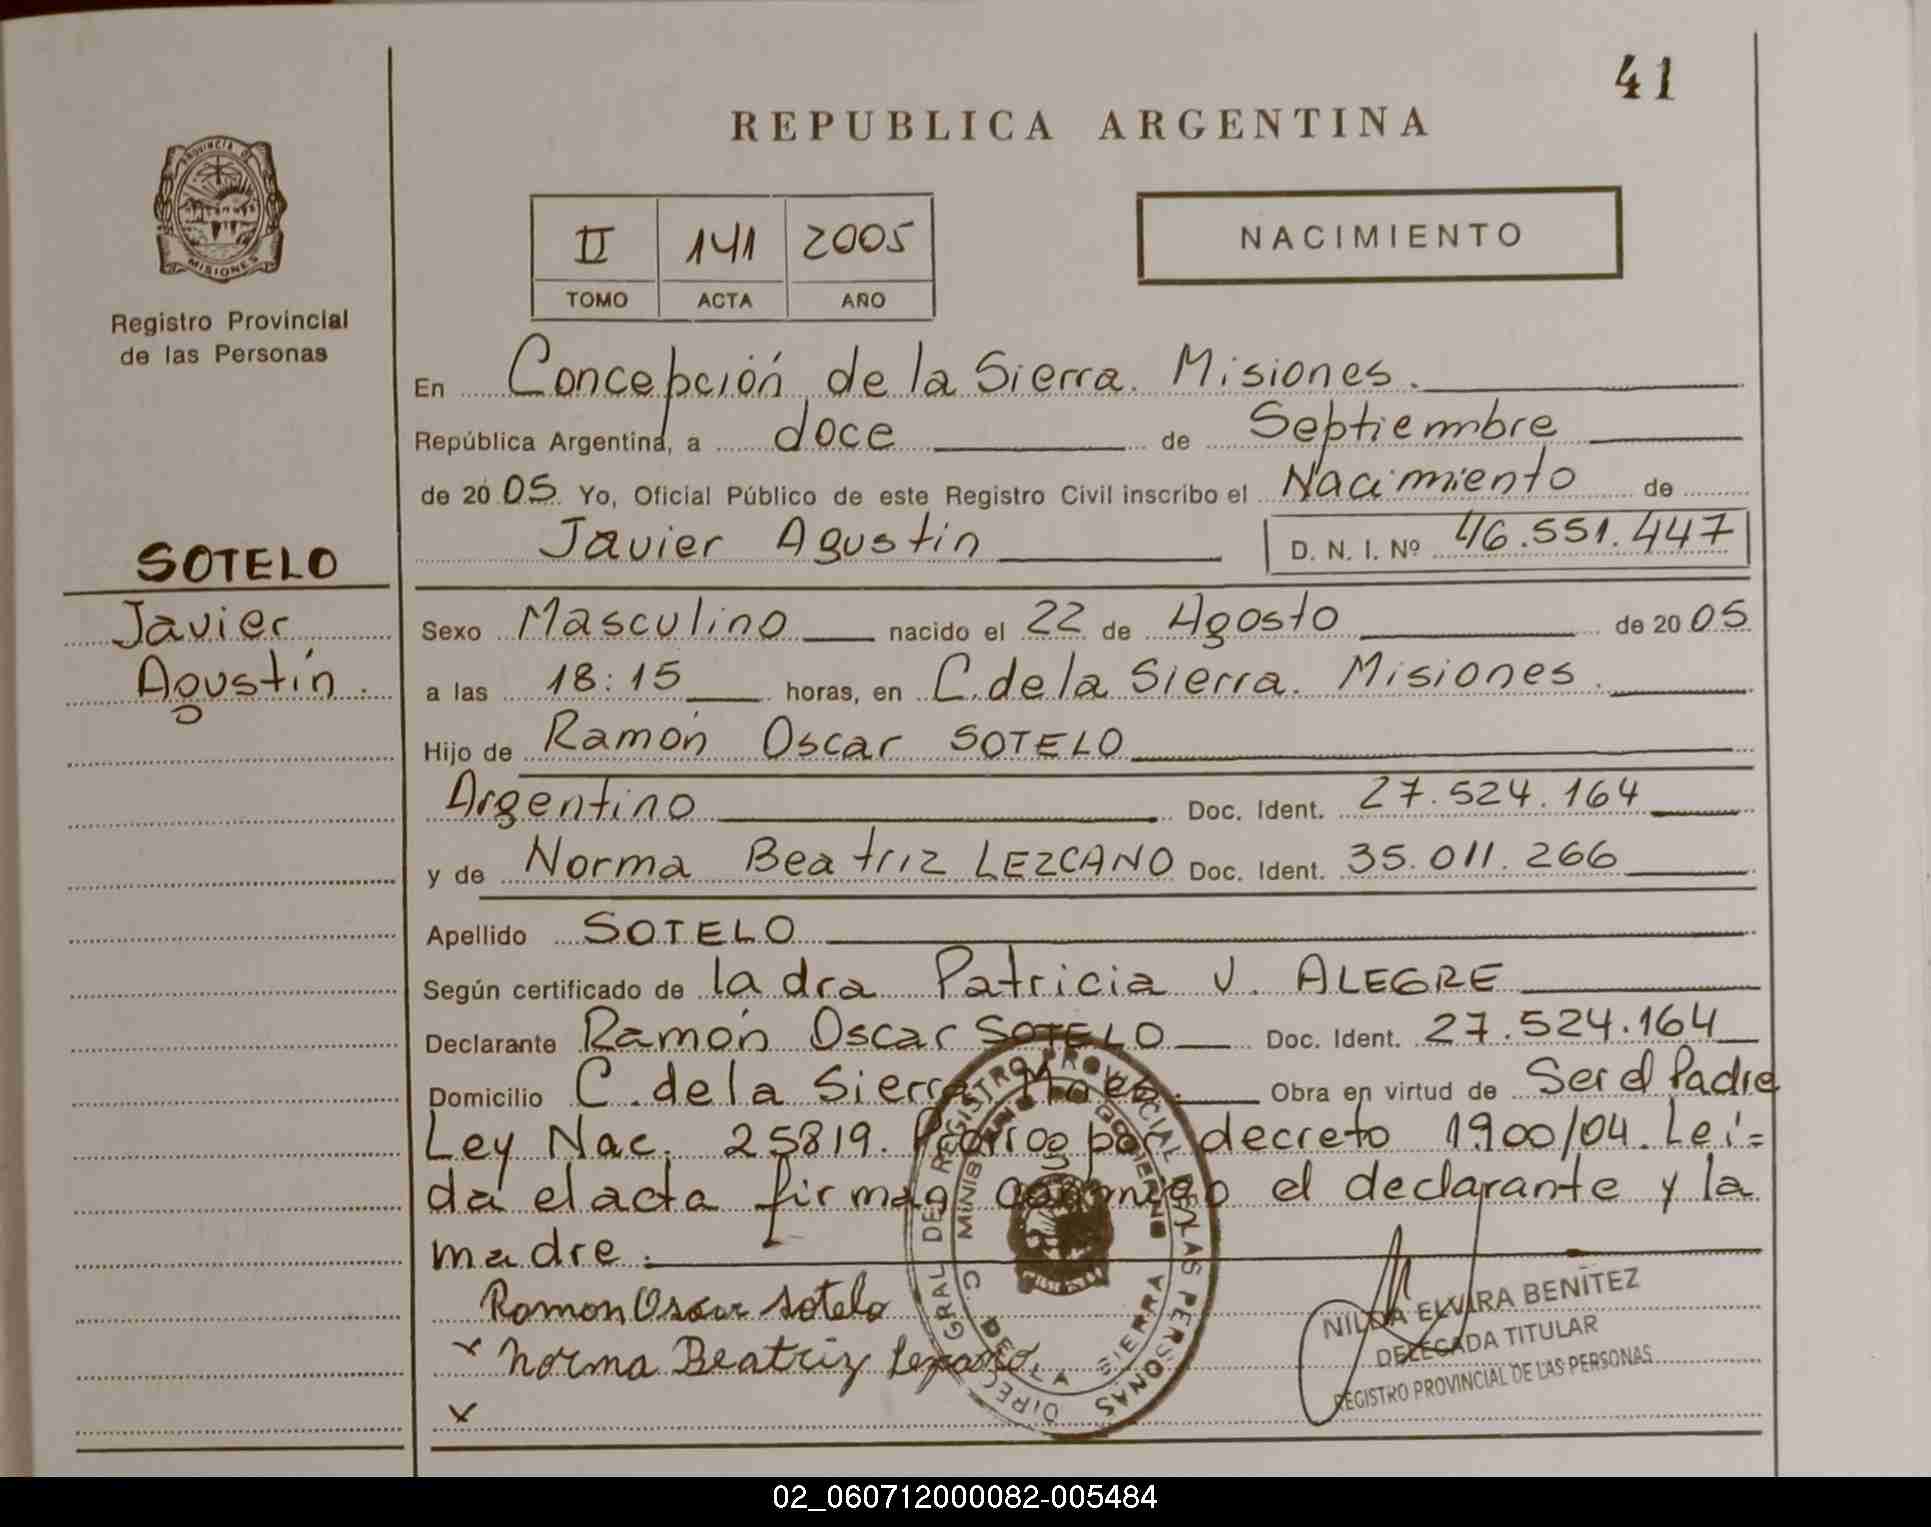 41
REPUBLICA ARGENTINA
PROVINCIA DE
MISIONES
Registro Provincial
de las Personas
II 141 2005
TOMO ACTA AÑO
NACIMIENTO
En Concepción de la Sierra. Misiones.
República Argentina, a doce de Septiembre
de 2005 Yo, Oficial Público de este Registro Civil inscribo el Nacimiento de
Javier Agustin D. N. I. Nº 46.551.447
SOTELO
Javier
Agustín.
Sexo Masculino nacido el 22 de Agosto de 2005
a las 18:15 horas, en C. de la Sierra. Misiones.
Hijo de Ramón Oscar SOTELO
Argentino Doc. Ident. 27.524.164
y de Norma Beatriz LEZCANO Doc. Ident. 35.011.266
Apellido SOTELO
Según certificado de la dra Patricia V. ALEGRE
Declarante Ramón Oscar SOTELO Doc. Ident. 27.524.164
Domicilio C. de la Sierra Mnes. Obra en virtud de Ser el Padre
Ley Nac. 25819. Prorrog por decreto 1900/04. Leí=
da el acta firman conmigo el declarante y la
madre.
Ramon Oscar Sotelo
x Norma Beatriz Lezcano
x
DIREC. GRAL. DE REGISTRO PROVINCIAL DE LAS PERSONAS
MINISTERIO DE GOBIERNO
C. DE LA SIERRA
NILDA ELVIRA BENÍTEZ
DELEGADA TITULAR
REGISTRO PROVINCIAL DE LAS PERSONAS
02_060712000082-005484